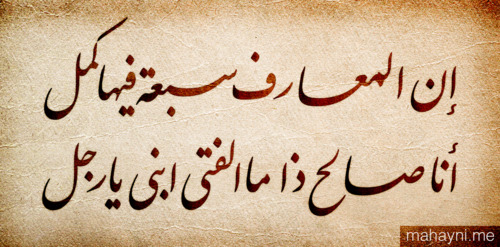 إن المعارف سبعة فيها كمل
أنا صالح ذا ما الفتى ابنى يا رجل
mahayni.me